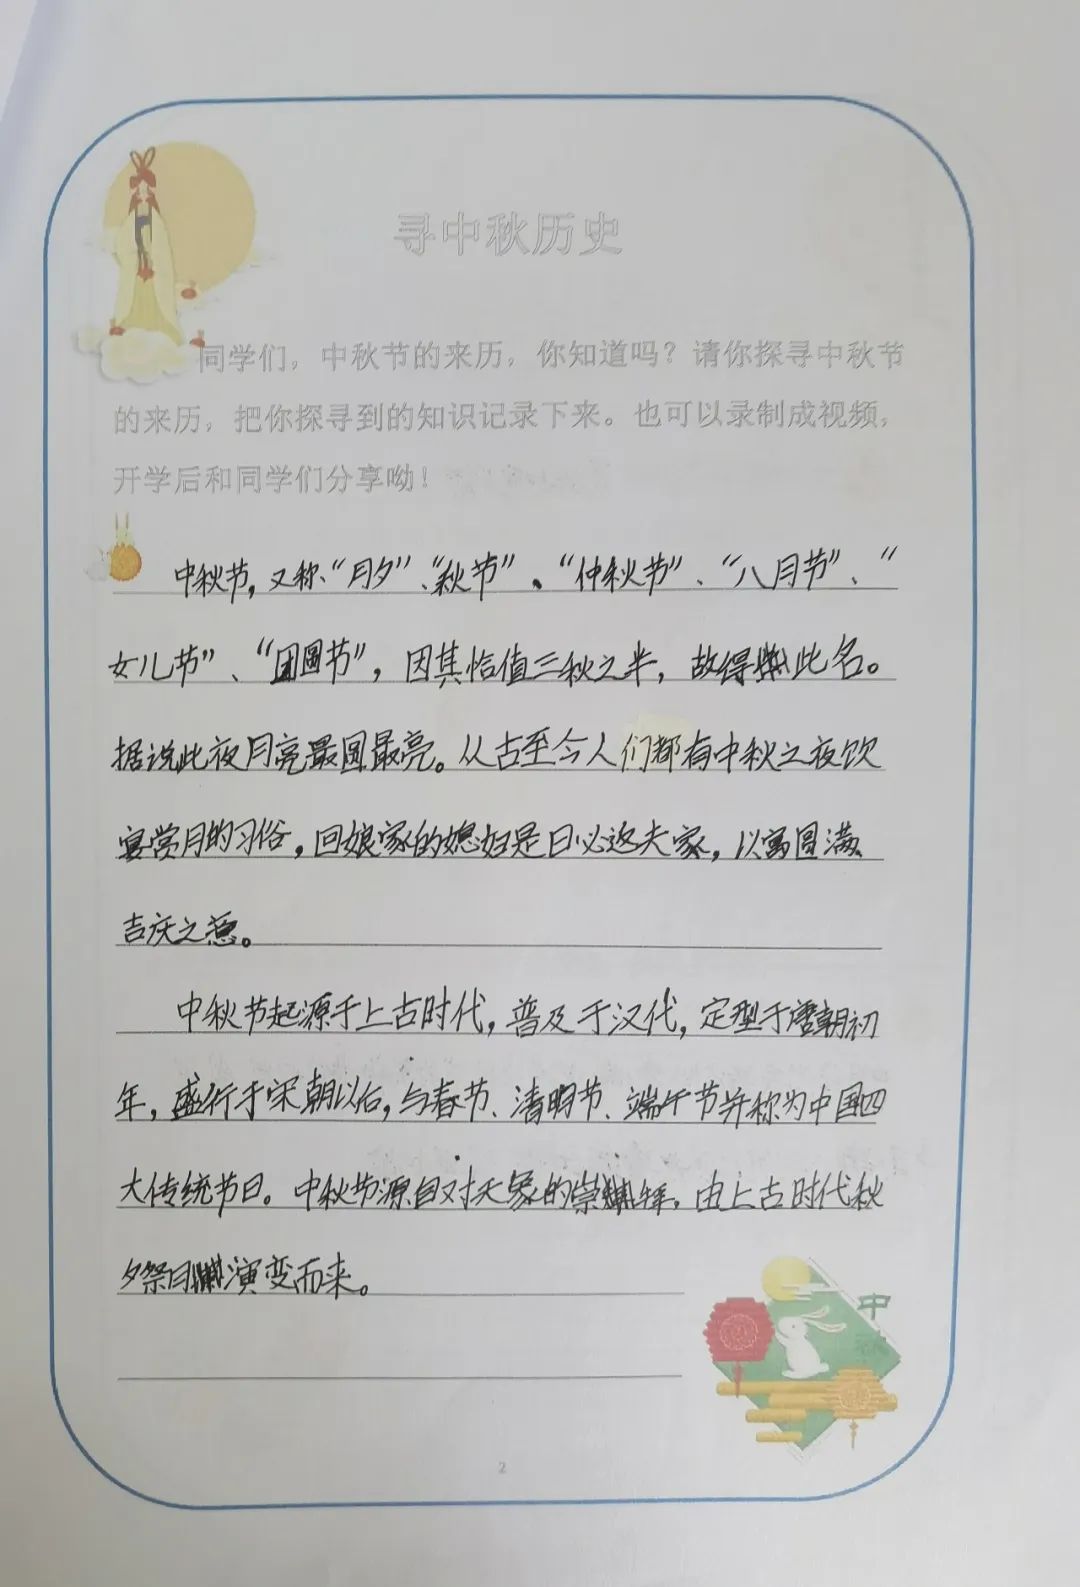 寻中秋历史
同学们，中秋节的来历，你知道吗？请你探寻中秋节
的来历，把你探寻到的知识记录下来。也可以录制成视频，
开学后和同学们分享呦！
中秋节，又称、“月夕”、“秋节”、“仲秋节”、“八月节”、“
女儿节”、“团圆节”，因其恰值三秋之半，故得此名。
据说此夜月亮最圆最亮。从古至今人们都有中秋之夜饮
宴赏月的习俗，回娘家的媳妇是日必返夫家，以寓圆满、
吉庆之意。
中秋节起源于上古时代，普及于汉代，定型于唐朝初
年，盛行于宋朝以后，与春节、清明节、端午节并称为中国四
大传统节日。中秋节源自对天象的崇，由上古时代秋
夕祭月演变而来。
中
秋
2